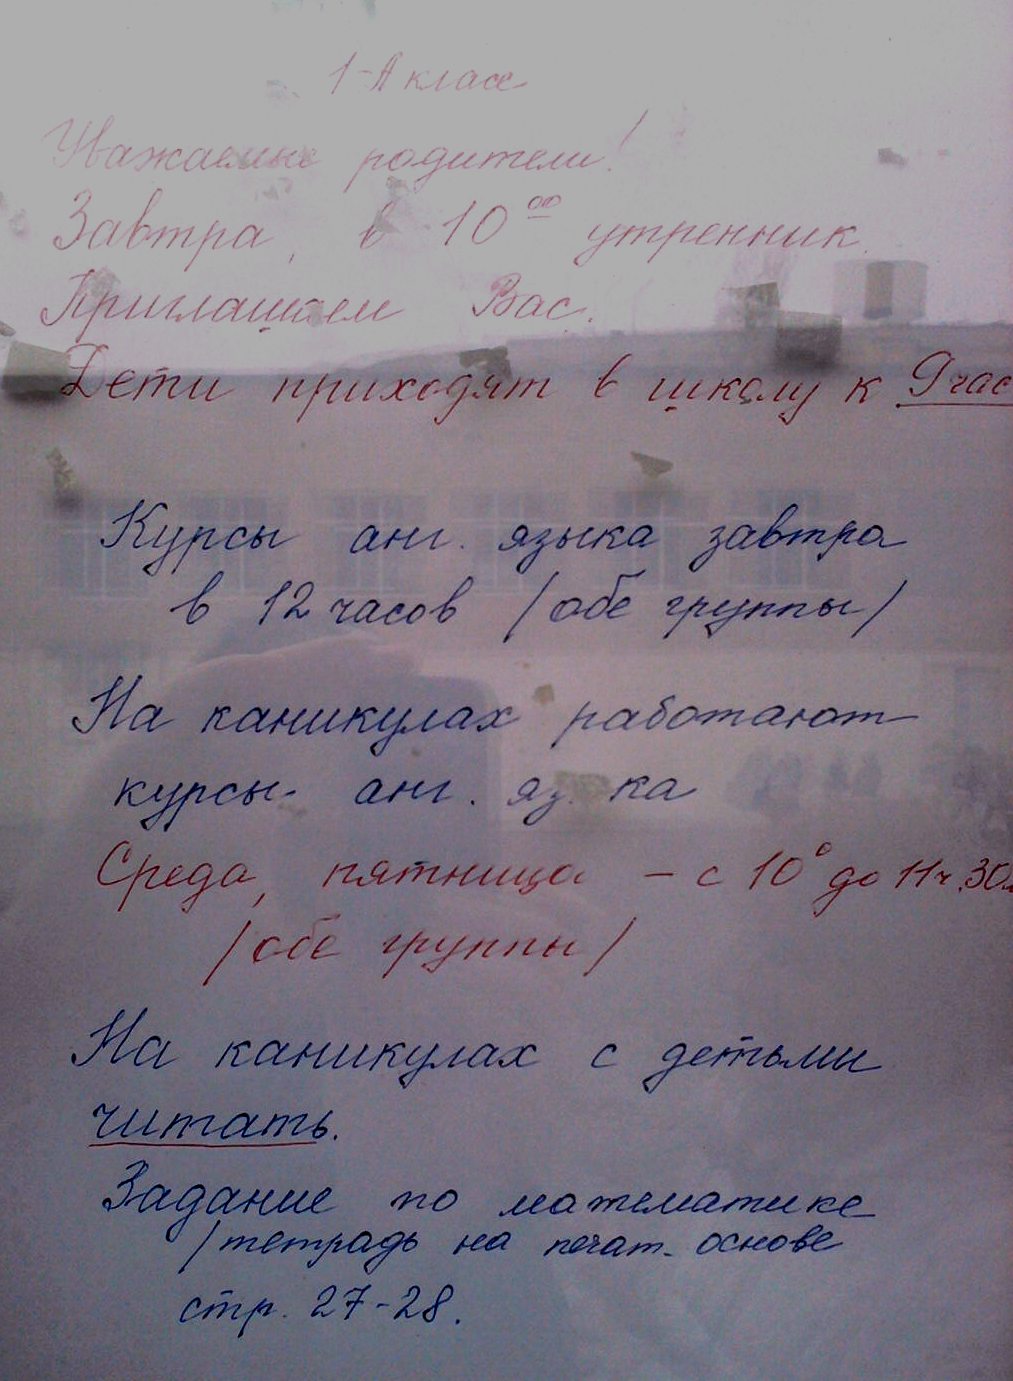 1-А класс
Уважаемые родители!
Завтра, в 10⁰⁰ утренник.
Приглашаем Вас.
Дети приходят в школу к 9 час
Курсы анг. языка завтра
в 12 часов /обе группы/
На каникулах работают
курсы анг. яз ка
Среда, пятница – с 10⁰ до 11ч.30м
/обе группы/
На каникулах с детьми
читать.
Задание по математике
/тетрадь на печат. основе
стр. 27-28.